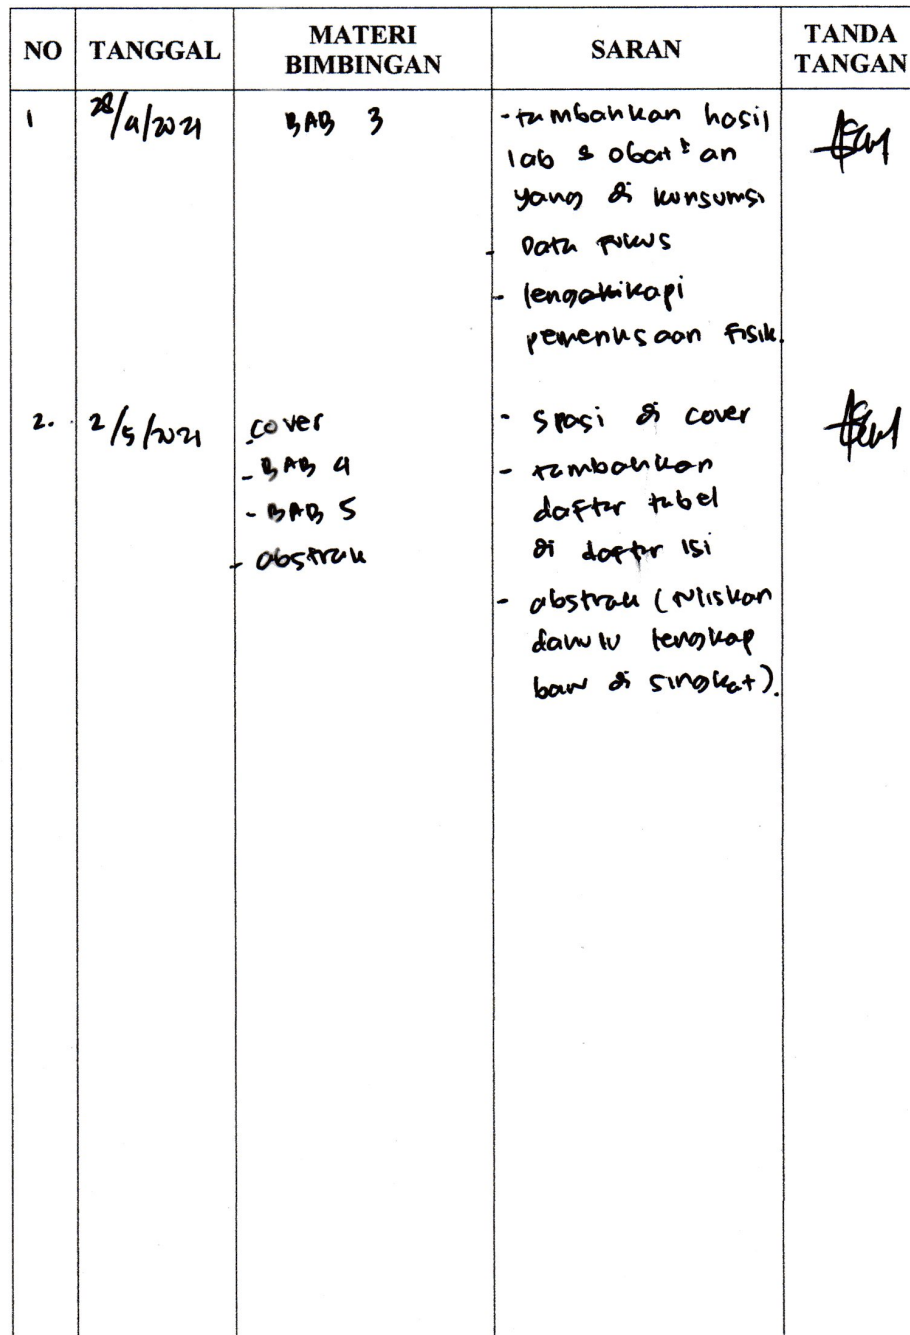 NO TANGGAL MATERI BIMBINGAN SARAN TANDA TANGAN
1 28/4/2021 BAB 3 - tambahkan hasil
lab & obat²an
yang di konsumsi
- Data fokus
- lengakikapi
pemeriksaan fisik.
2. 2/5/2021 - cover - spasi di cover
- BAB 4 - tambahkan
- BAB 5 daftar tabel
- abstrak di daftar isi
- abstrak (tuliskan
dahulu lengkap
baru di singkat).